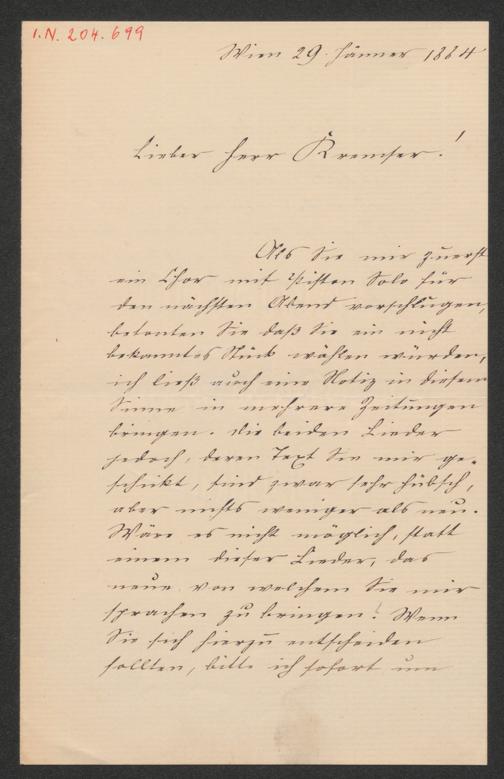 I.N. 204.699
Wien 29. Jänner 1884
Lieber Herr Kremser!
Als Sie mir zuerst
ein Chor mit Solo für
den nächsten Abend vorschlugen,
betonten Sie daß Sie ein nicht
bekanntes Stück wählen würden,
ich ließ auch eine Notiz in diesem
Sinne in mehrere Zeitungen
bringen. Die beiden Lieder
jedoch, deren Text Sie mir ge-
schickt, sind zwar sehr hübsch,
aber nichts weniger als neu.
Wäre es nicht möglich, statt
einem dieser Lieder, das
neue von welchem Sie mir
sprachen zu bringen? Wenn
Sie sich hierzu entscheiden
sollten, bitte ich sofort um